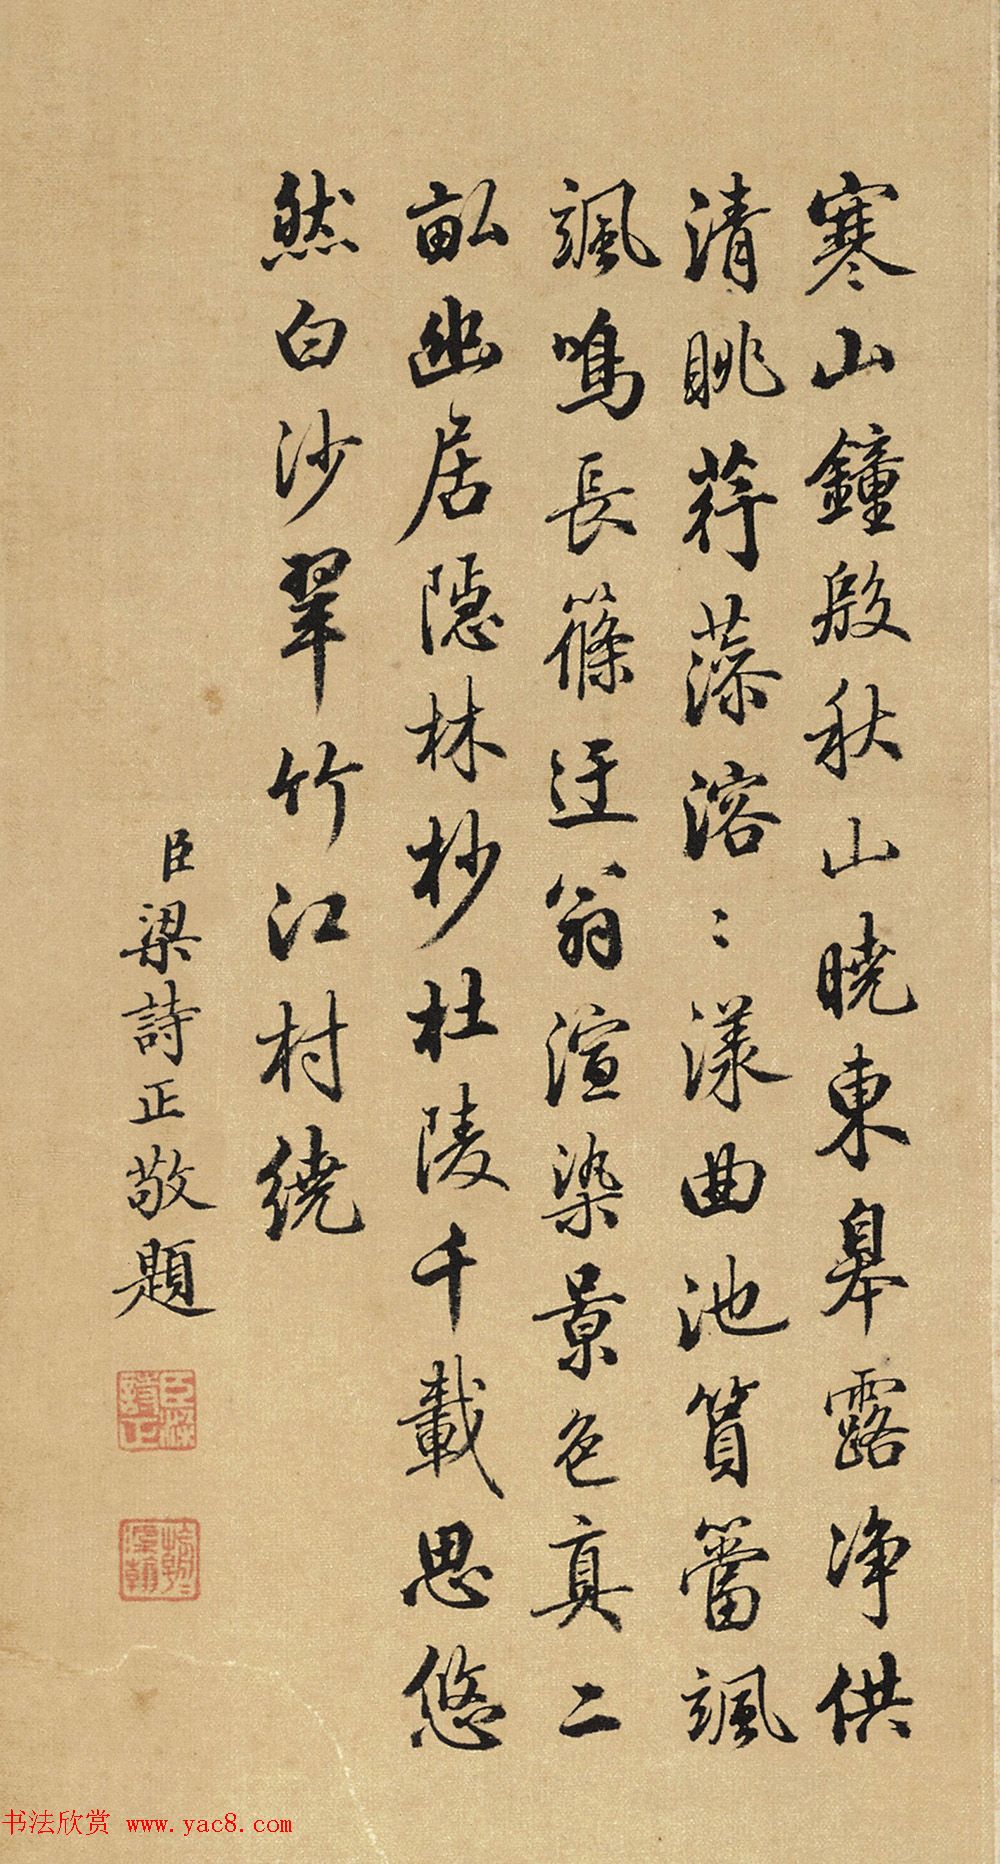 寒山鐘殷秋山曉東皋露净供
清眺荇藻溶〻漾曲池篔簹颯
颯鳴長篠迂翁渲染景色真二
畝幽居隱林杪杜陵千載思悠
然白沙翠竹江村繞
臣梁詩正敬題
臣梁詩正
书法欣赏 www.yac8.com